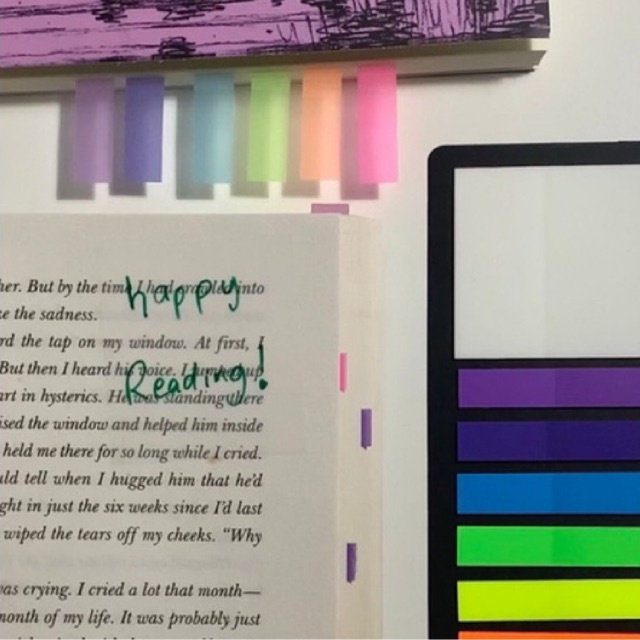 her. But by the time I had crawled into
e the sadness.
rd the tap on my window. At first, I
But then I heard his voice. I jumped up
art in hysterics. He was standing there
ised the window and helped him inside
held me there for so long while I cried.
uld tell when I hugged him that he'd
ght in just the six weeks since I'd last
wiped the tears off my cheeks. "Why
as crying. I cried a lot that month—
month of my life. It was probably just
happy
Reading!